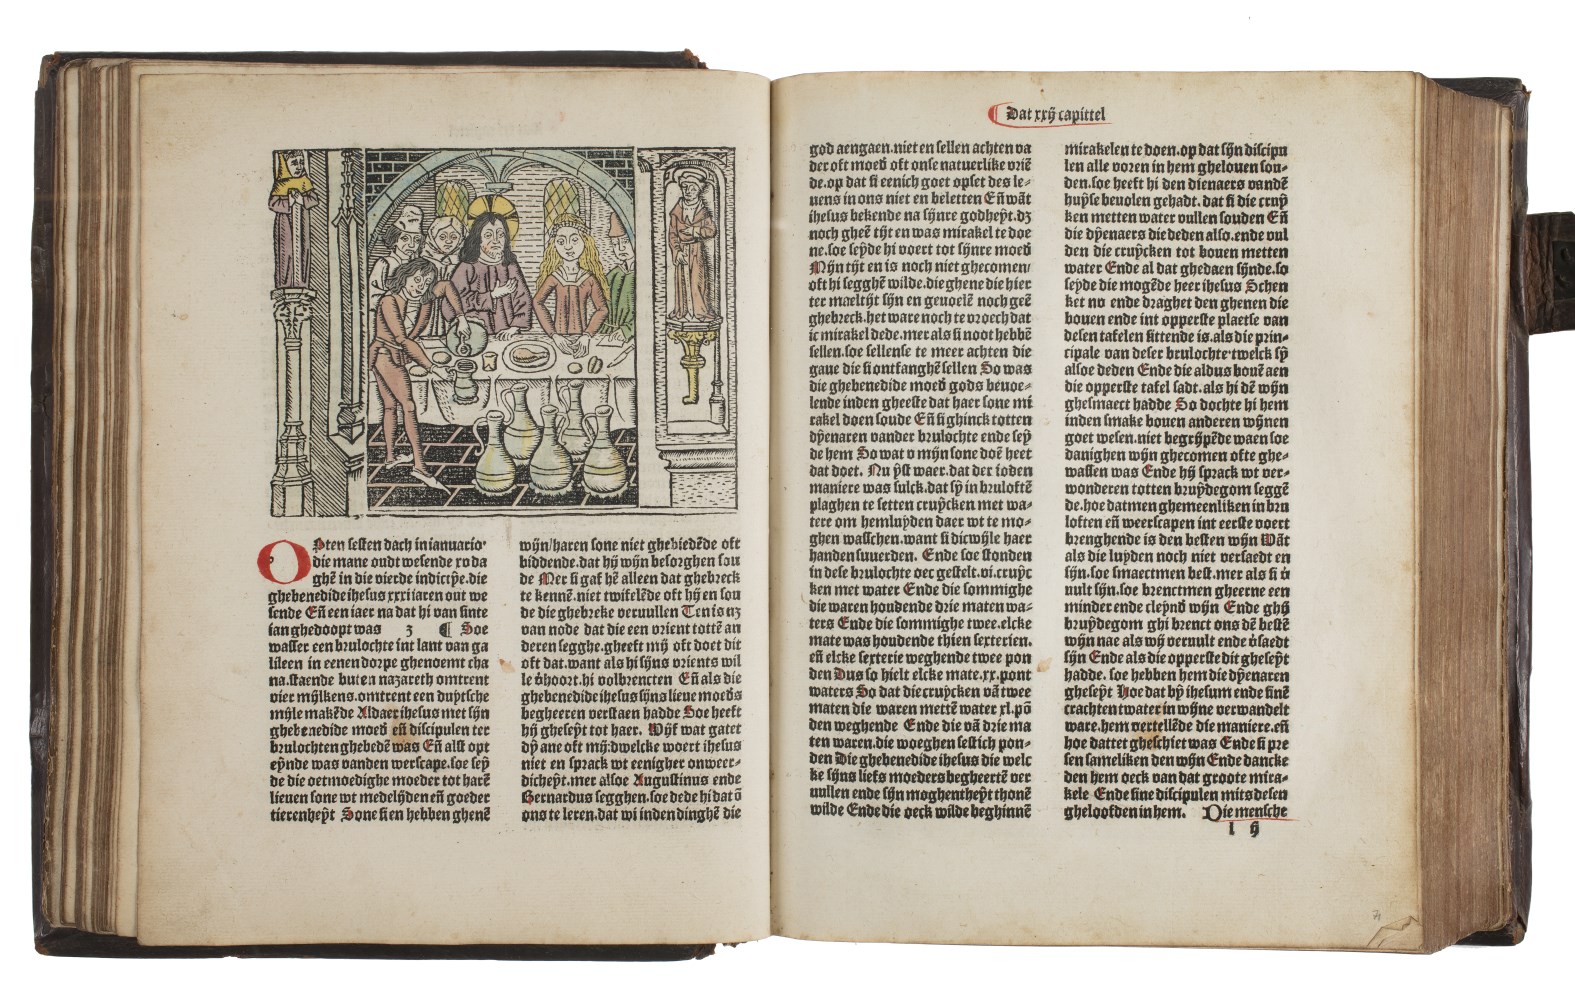 Opten sesten dach in ianuario·
die mane oudt wesende xv da
ghē in die vierde indictÿe.die
ghebenedide ihesus xxxi iaren out we
sende Eñ een iaer na dat hi van sinte
ian ghedoopt was 3 ¶ Soe
wasser een brulochte int lant van ga
lileen in eenen dorpe ghenoemt cha
na.staende buten nazareth omtrent
vier mÿlkens.omtrent een duÿtsche
mÿle makēde Aldaer ihesus met sÿn
ghebenedide moed̄ eñ discipulen ter
brulochten ghebedē was Eñ alst opt
eÿnde was vanden werscape.soe seÿ
de die oetmoedighe moeder tot harē
lieuen sone wt medelÿden eñ goeder
tierenheÿt Sone sien hebben ghenē
wÿn/haren sone niet ghebiedēde oft
biddende.dat hÿ wÿn besorghen sou
de Mer si gaf hē alleen dat ghebreck
te kennē.niet twifelēde oft hÿ en sou
de die ghebreke veruullen Ten is nz
van node dat die een vrient tottē an
deren segghe.gheeft mÿ oft doet dit
oft dat.want als hi sÿns vrients wil
le v̄hoort.hi volbrencten Eñ als die
ghebenedide ihesus sÿns lieue moed̄s
begheeren verstaen hadde Soe heeft
hÿ gheseÿt tot haer. Wÿf wat gatet
dÿ ane oft mÿ:dwelcke woert ihesus
niet en sprack wt eenigher onweer⸗
dicheÿt.mer alsoe Augustinus ende
Bernardus segghen.soe dede hi dat ō
ons te leren.dat wi inden dinghē die
¶ Dat xxÿ capittel
god aengaen.niet en sellen achten va
der oft moed̄ oft onse natuerlike vriē
de.op dat si eenich goet opset des le⸗
uens in ons niet en beletten Eñ wāt
ihesus bekende na sÿnre godheÿt.dz
noch gheē tÿt en was mirakel te doe
ne.soe seÿde hi voert tot sÿnre moed̄
Mÿn tÿt en is noch niet ghecomen/
oft hi segghē wilde.die ghene die hier
ter maeltÿt sÿn en geuoelē noch geē
ghebreck.het ware noch te vroech dat
ic mirakel dede.mer als si noot hebbē
sellen.soe sellense te meer achten die
gaue die si ontfanghē sellen So was
die ghebenedide moed̄ gods beuoe⸗
lende inden gheeste dat haer sone mi
rakel doen soude Eñ si ghinck totten
dÿenaren vander brulochte ende seÿ
de hem So wat v mÿn sone doē heet
dat doet. Nu ÿst waer.dat der ioden
maniere was sulck.dat sÿ in bruloftē
plaghen te setten cruÿcken met wa⸗
tere om hemluÿden daer wt te mo⸗
ghen wasschen.want si dicwÿle haer
handen suuerden. Ende soe stonden
in dese brulochte oec gestelt.vi.cruÿc
ken met water Ende die sommighe
die waren houdende drie maten wa⸗
ters Ende die sommighe twee.elcke
mate was houdende thien sexterien.
eñ elcke sexterie weghende twee pon
den Dus so hielt elcke mate.xx.pont
waters So dat die cruÿcken vā twee
maten die waren mettē water xl.pō
den weghende Ende die vā drie ma
ten waren.die woeghen sestich pon⸗
den Die ghebenedide ihesus die welc
ke sÿns liefs moeders begheertē ver
uullen ende sÿn moghentheÿt thonē
wilde Ende die oeck wilde beghinnē
mirakelen te doen.op dat sÿn discipu
len alle voren in hem ghelouen sou⸗
den.soe heeft hi den dienaers vandē
huÿse beuolen gehadt. dat si die cruÿ
ken metten water vullen souden Eñ
die dÿenaers die deden also.ende vul
den die cruÿcken tot bouen metten
water Ende al dat ghedaen sÿnde.so
seÿde die mogēde heer ihesus Schen
ket nv ende draghet den ghenen die
bouen ende int opperste plaetse van
desen tafelen sittende is.als die prin⸗
cipale van deser brulochte·twelck sÿ
alsoe deden Ende die aldus bouē aen
die opperste tafel sadt.als hi dē wÿn
ghesmaect hadde So dochte hi hem
inden smake bouen anderen wÿnen
goet wesen.niet begrÿpēde waen soe
danighen wÿn ghecomen ofte ghe⸗
wassen was Ende hÿ sprack wt ver⸗
wonderen totten bruÿdegom seggē
de.hoe datmen ghemeenliken in bru
loften eñ weerscapen int eerste voert
brenghende is den besten wÿn Wāt
als die luÿden noch niet versaedt en
sÿn.soe smaectmen best.mer als si v̄
uult sÿn.soe brenctmen gheerne een
minder ende cleÿnd̄ wÿn Ende ghÿ
bruÿdegom ghi brenct ons dē bestē
wÿn nae als wÿ veruult ende v̄saedt
sÿn Ende als die opperste dit gheseÿt
hadde. soe hebben hem die dÿenaren
gheseÿt Hoe dat bÿ ihesum ende sinē
crachten twater in wÿne verwandelt
ware.hem vertellēde die maniere.eñ
hoe dattet gheschiet was Ende si pre
sen sameliken den wÿn Ende dancke
den hem oeck van dat groote mira⸗
kele Ende sine discipulen mits desen
gheloofden in hem. Die mensche
l ÿ
71